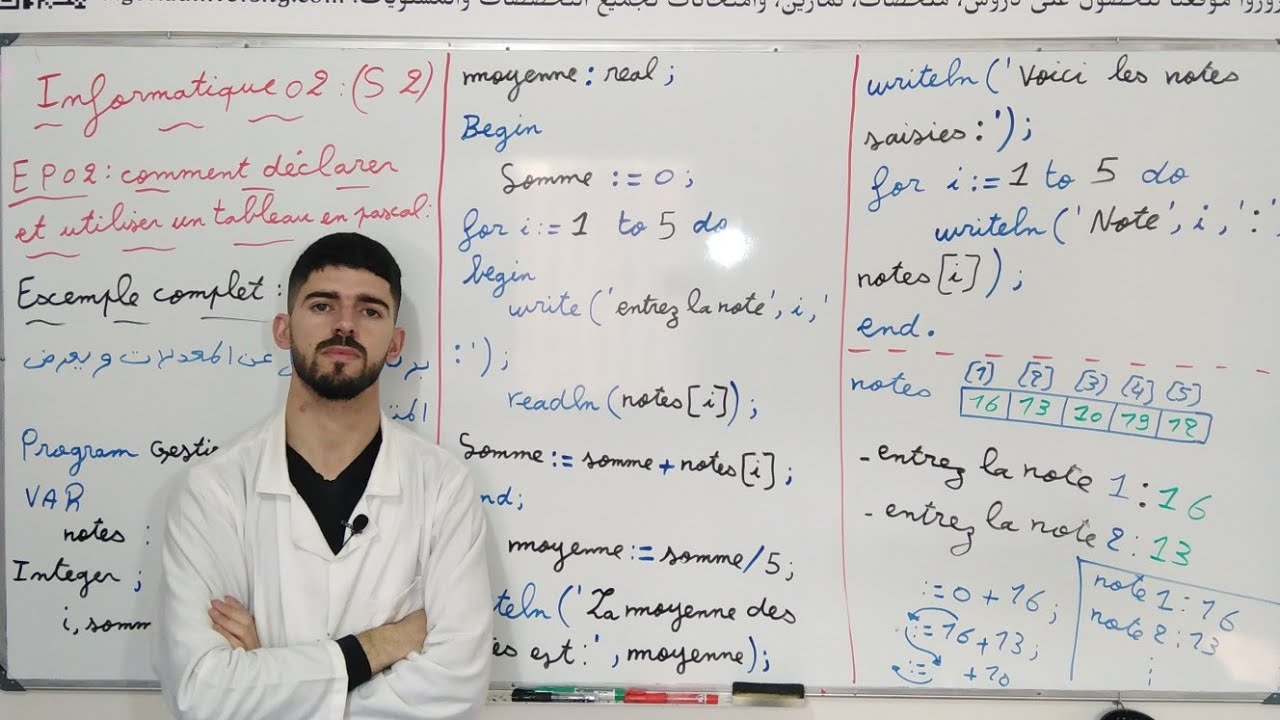 زوروا موقعنا للحصول على دروس، ملخصات، تمارين، وامتحانات لجميع التخصصات والمستويات:
Informatique 02 : (S 2)
EP02 : comment déclarer
et utiliser un tableau en pascal :
Excemple complet :
عن المعدلات و يعرض
Program Gesti
VAR
notes :
Integer ;
i, somm
moyenne : real ;
Begin
Somme := 0 ;
for i := 1 to 5 do
begin
write ('entrez la note', i, '
: ') ;
readln (notes [i]) ;
Somme := somme + notes [i] ;
nd ;
moyenne := somme / 5 ;
teln (' La moyenne des
es est : ' , moyenne) ;
writeln (' Voici les notes
saisies : ') ;
for i := 1 to 5 do
writeln (' Note' , i , ' : ' ,
notes [i] ) ;
end.
notes [1] [2] [3] [4] [5]
16 13 10 19 12
- entrez la note 1 : 16
- entrez la note 2 : 13
:= 0 + 16 ;
:= 16 + 13 ;
:= + 10
note 1 : 16
note 2 : 13